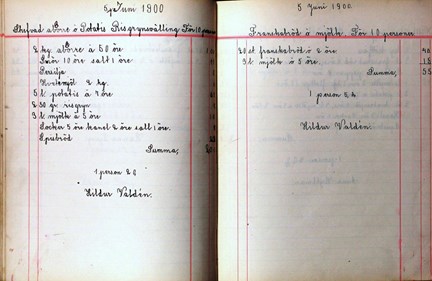 5 Juni 1900
Stufvad abbre o Potatis Risgrynsvälling För 10 personer
2 kg. abbre á 50 öre
Smör 10 öre salt 1 öre
Persilja
Hvetemjöl 2 kg.
5 l potatis á 4 öre
2 50 gr risgryn
3 l mjölk á 5 öre
Socker 5 öre kanel 2 öre salt 1 öre.
Spisbröd
Summa;
1 person 20
Hildur Valdén.
5 Juni 1900
Franskabröd o mjölk. För 10 personer
20 st franskabröd o 2 öre. 40
3 l mjölk o 5 öre. 15
Summa; 55
1 person
Hildur Valdén.